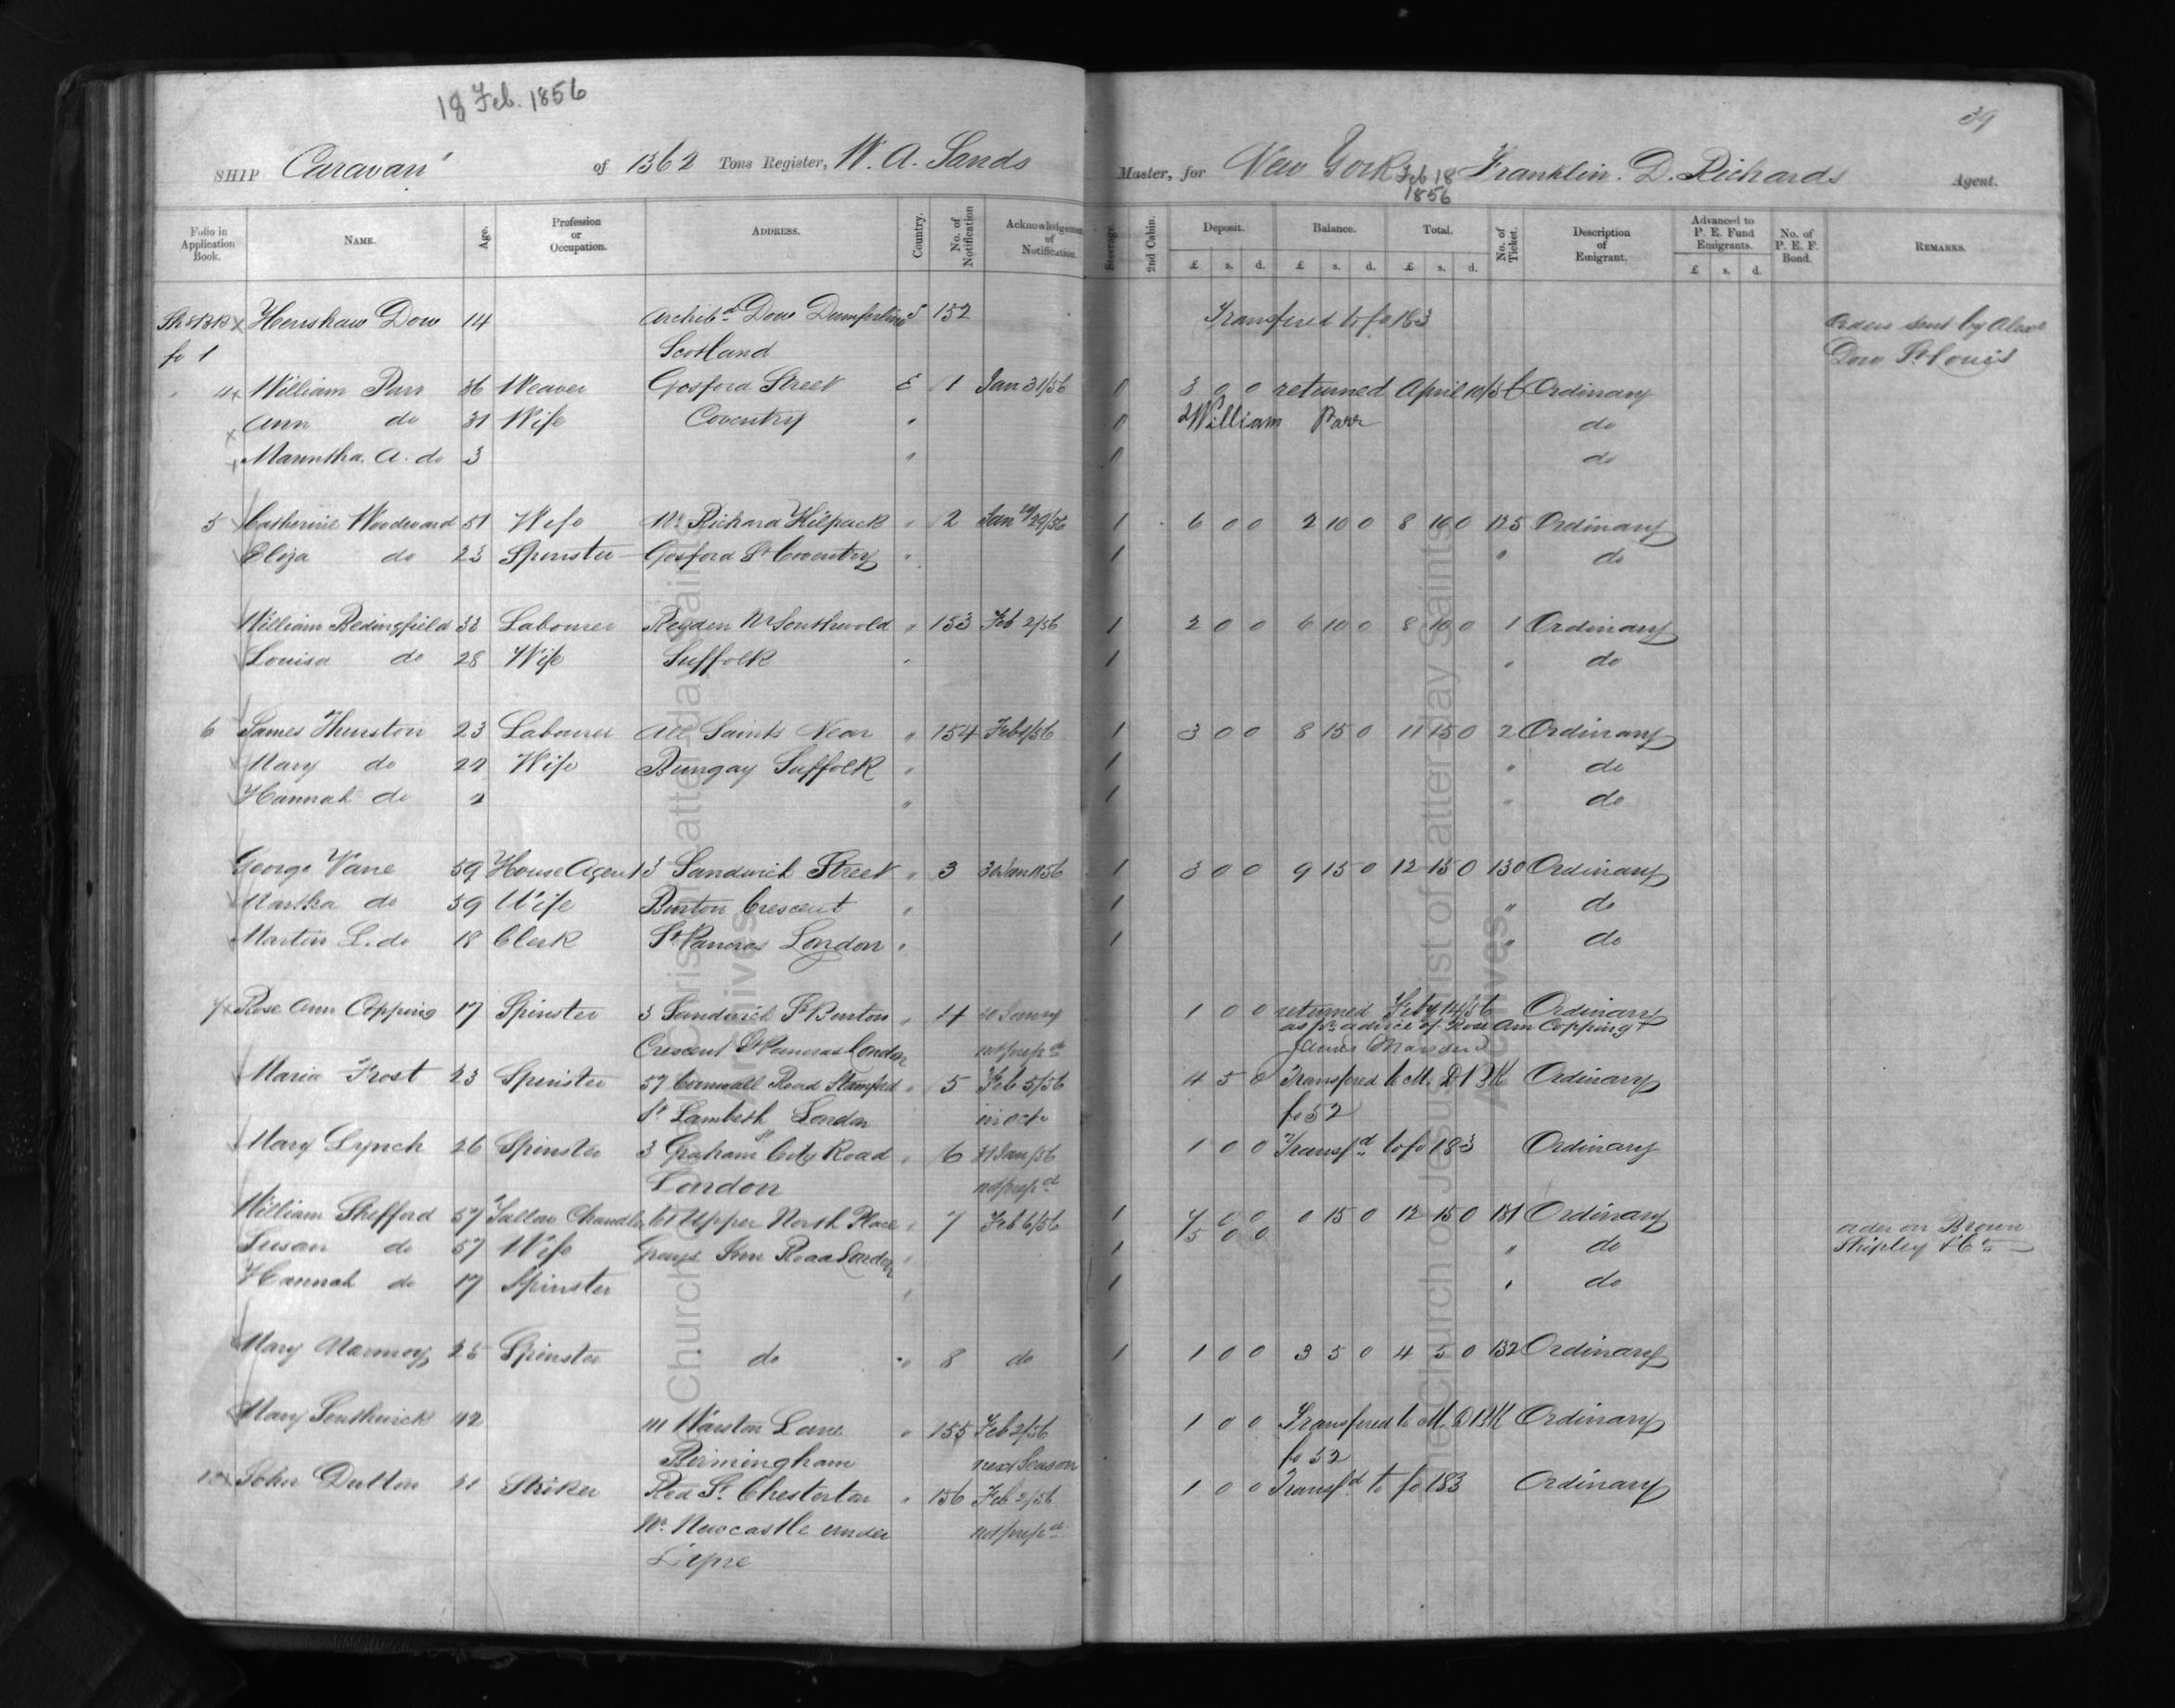 18 Feb. 1856
39
SHIP "Caravan" of 1362 Tons Register, W. A. Sands Master, for New York Feb 18 1856 Franklin. D. Richards Agent.
Folio in Application Book. NAME. Age. Profession or Occupation. ADDRESS. Country. No. of Notification Acknowledgement of Notification. Steerage. 2nd Cabin. Deposit. Balance. Total. No. of Ticket. Description of Emigrant. Advanced to P. E. Fund Emigrants. No. of P. E. F. Bond. REMARKS.
£ s. d. £ s. d. £ s. d. £ s. d.
Henshaw Dow 14 Archibd Dow Dumferline S 152 Transfered to fo 183 Orders sent by Alexr
fo 1 Scotland Dow St Louis
4x William Parr 36 Weaver Gosford Street E 1 Jan 31/56 3 0 0 returned April 10/56 Ordinary
x Ann do 31 Wife Coventry " 0 William Parr do
Marintha. A. do 3 " 0 do
5 Catherine Woodward 51 Wife Mr Richard Kilpack " 2 Jan 29/56 1 6 0 0 2 10 0 8 10 0 125 Ordinary
Eliza do 23 Spinster Gosford St Coventry " 1 " do
William Bedingfield 33 Labourer Reydon Nr Southwold " 153 Feb 2/56 1 2 0 0 6 10 0 8 10 0 1 Ordinary
Louisa do 28 Wife Suffolk " 1 " do
6 James Thurston 23 Labourer All Saints Near " 154 Feb 1/56 1 3 0 0 8 15 0 11 15 0 2 Ordinary
Mary do 22 Wife Bungay Suffolk " 1 " do
Hannah do 2 " 1 " do
George Vane 59 House Agent 3 Sandwich Street " 3 30 Jan 1856 1 3 0 0 9 15 0 12 15 0 130 Ordinary
Martha do 59 Wife Burton Crescent " 1 " do
Martin L. do 18 Clerk St Pancras London " 1 " do
7x Rose Ann Copping 17 Spinster 3 Sandwich St Burton " 4 1 0 0 returned Feby 14/56 Ordinary
as pr advice of Rose Ann Copping +
Crescent St Pancras London not prepd James Marsden
Maria Frost 23 Spinster 57 Cornwall Road Stamford " 5 Feb 5/56 4 5 0 Transfered to M. D B K Ordinary
St Lambeth London fo 52
Mary Lynch 26 Spinster 3 Graham St City Road " 6 31 Jan/56 1 0 0 Transfd to fo 183 Ordinary
London not prepd
William Shefford 57 Tallow Chandler 61 Upper North Place " 7 Feb 6/56 1 7 0 0 0 15 0 12 15 0 131 Ordinary order on Brown
5 0 0
Susan do 57 Wife Grays Inn Road London " 1 " do Shipley & Co
Hannah do 17 Spinster " 1 " do
Mary 25 Spinster do " 8 do 1 1 0 0 3 5 0 4 5 0 132 Ordinary
Mary Southwick 42 111 Warston Lane " 155 Feb 2/56 1 0 0 Transfered to M. D B K Ordinary
Birmingham next Season fo 52
John Dutton 21 Striker Red St Chesterton " 156 Feb 2/56 1 0 0 Transfd to fo 183 Ordinary
Nr Newcastle under not prepd
Lyne
Church of Jesus Christ of Latter-day Saints
Archives
The Church of Jesus Christ of Latter-day Saints
Archives